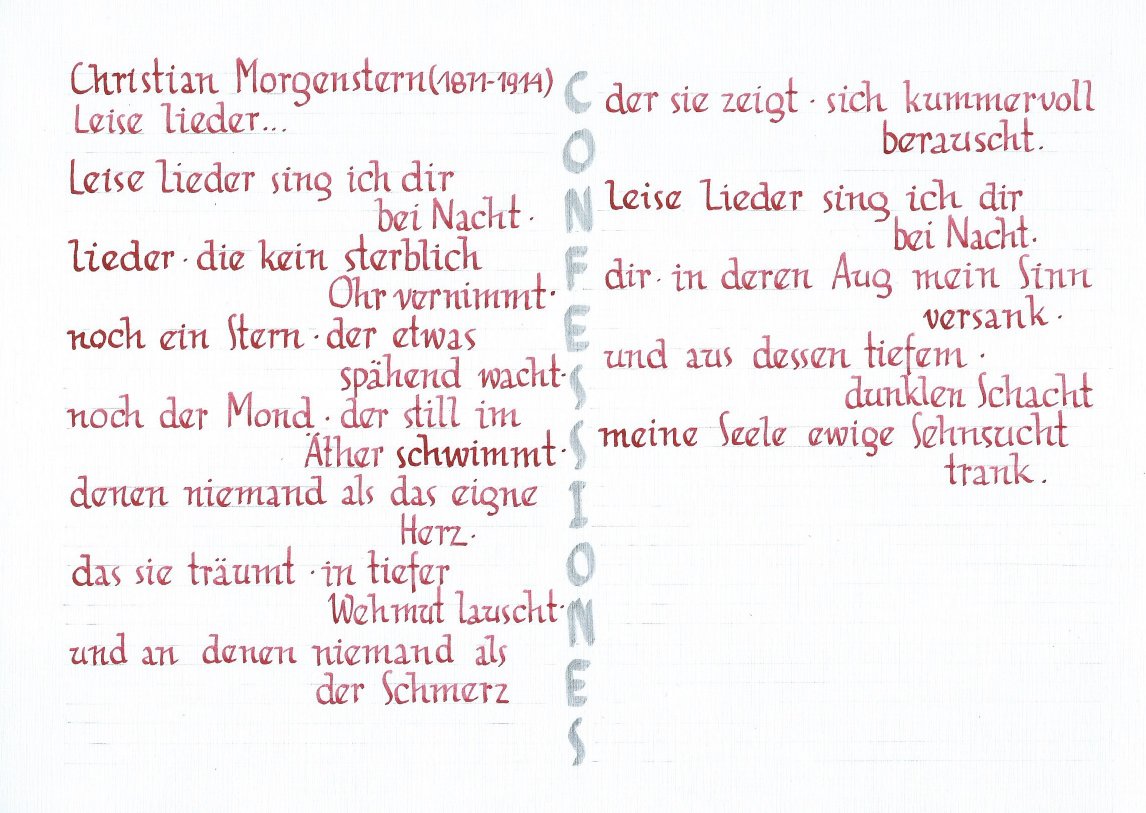 Christian Morgenstern (1871-1914)
Leise lieder...
Leise lieder sing ich dir
bei Nacht.
lieder · die kein sterblich
Ohr vernimmt·
noch ein Stern · der etwas
spähend wacht·
noch der Mond · der still im
Äther schwimmt·
denen niemand als das eigne
Herz·
das sie träumt · in tiefer
Wehmut lauscht·
und an denen niemand als
der Schmerz
CONFESSIONES
der sie zeigt · sich kummervoll
berauscht.
Leise Lieder sing ich dir
bei Nacht.
dir · in deren Aug mein Sinn
versank ·
und aus dessen tiefem ·
dunklen Schacht
meine Seele ewige Sehnsucht
trank.